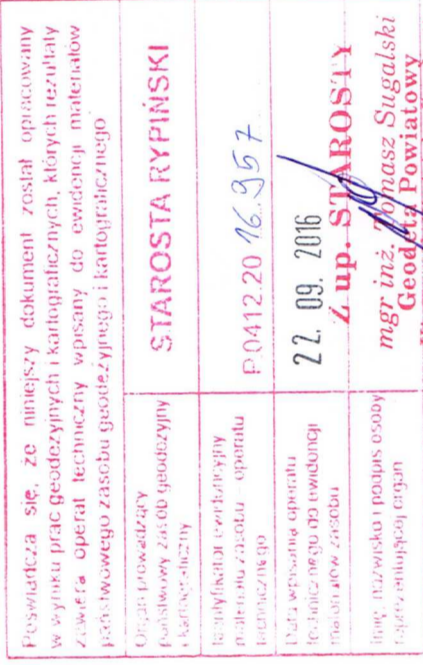 Poświadcza się, że niniejszy dokument został opracowany
w wyniku prac geodezyjnych i kartograficznych, których rezultaty
zawiera operat techniczny wpisany do ewidencji materiałów
państwowego zasobu geodezyjnego i kartograficznego
Organ prowadzący
państwowy zasób geodezyjny
i kartograficzny
STAROSTA RYPIŃSKI
Identyfikator ewidencyjny
materiału zasobu - operatu
technicznego
P.0412.20 16.957
Data wpisania operatu
technicznego do ewidencji
materiałów zasobu
22. 09. 2016
Imię, nazwisko i podpis osoby
reprezentującej organ
Z up. STAROSTY
mgr inż. Tomasz Sugalski
Geodeta Powiatowy